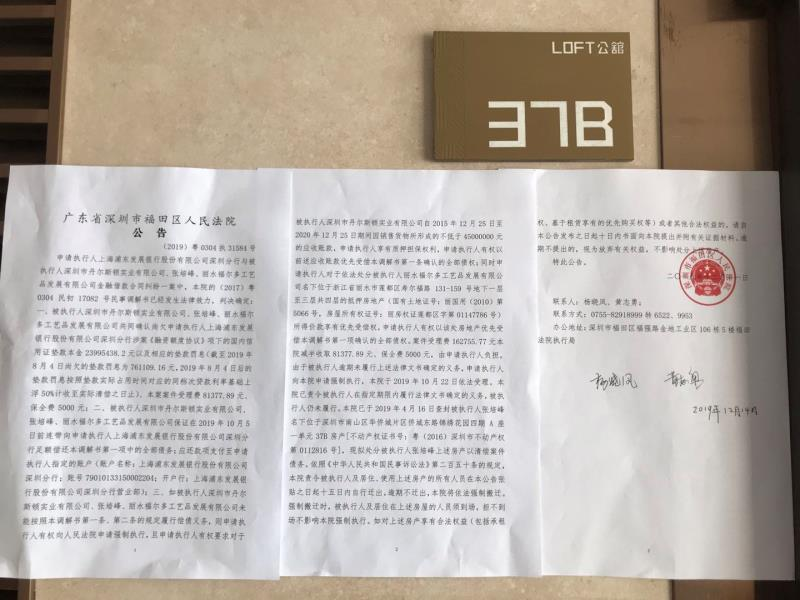 LOFT公舘
37B
广东省深圳市福田区人民法院
公 告
（2019）粤 0304 执 31584 号
申请执行人上海浦东发展银行股份有限公司深圳分行与被
执行人深圳市丹尔斯顿实业有限公司、张培峰、丽水福尔多工艺
品发展有限公司金融借款合同纠纷一案中，本院的（2017）粤
0304 民初 17082 号民事调解书已经发生法律效力，判决确定：
一、被执行人深圳市丹尔斯顿实业有限公司、张培峰、丽水福尔
多工艺品发展有限公司共同确认尚欠申请执行人上海浦东发展
银行股份有限公司深圳分行涉案《融资额度协议》项下的国内信
用证垫款本金 23995438.2 元以及相应的垫款罚息（截至 2019 年
8 月 4 日尚欠的垫款罚息为 761109.16 元，2019 年 8 月 4 日后的
垫款罚息按照垫款实际占用时间对应的同档次贷款利率基础上
浮 50%计收至实际清偿之日止）。本案案件受理费 81377.89 元、
保全费 5000 元；二、被执行人深圳市丹尔斯顿实业有限公司、
张培峰、丽水福尔多工艺品发展有限公司保证在 2019 年 10 月 5
日前连带向申请执行人上海浦东发展银行股份有限公司深圳分
行足额偿还本调解书第一项中的全部债务；应还款项支付至申请
执行人指定的账户（账户名称：上海浦东发展银行股份有限公司
深圳分行；账号 79010133150002204；开户行：上海浦东发展银
行股份有限公司深圳分行营业部）；三、如被执行人深圳市丹尔
斯顿实业有限公司、张培峰、丽水福尔多工艺品发展有限公司未
能按照本调解书第一条、第二条的规定履行偿债义务，则申请执
行人有权向人民法院申请强制执行，且申请执行人有权要求对于
1
被执行人深圳市丹尔斯顿实业有限公司自 2015 年 12 月 25 日至
2020 年 12 月 25 日期间因销售货物所形成的不低于 45000000 元
的应收账款，申请执行人享有质押担保权利，申请执行人有权以
前述应收账款优先受偿本调解书第一条确认的全部债权；同时申
请执行人对于依法处分被执行人丽水福尔多工艺品发展有限公
司名下位于浙江省丽水市莲都区寿尔福路 131-159 号地下一层
至三层共四层的抵押房地产（国有土地证号：丽国用（2010）第
5066 号，房屋所有权证号：丽房权证莲都区字第 01147786 号）
所得价款享有优先受偿权，申请执行人有权以该处房地产优先受
偿本调解书第一项确认的全部债权。案件受理费 162755.77 元本
院减半收取 81377.89 元、保全费 5000 元，由申请执行人负担。
由于被执行人逾期未履行上述法律文书确定的义务，申请执行人
向本院申请强制执行，本院于 2019 年 10 月 22 日依法受理。本院
已责令被执行人在指定期限内履行法律文书确定的义务，被执行
人仍未履行。本院已于 2019 年 4 月 16 日查封被执行人张培峰
名下位于深圳市南山区华侨城片区侨城东路锦绣花园四期 A 座
一单元 37B 房产[不动产权证书号：粤（2016）深圳市不动产权
第 0112816 号]。现拟处分被执行人张培峰上述房产以清偿案件
债务。依照《中华人民共和国民事诉讼法》第二百五十条的规定，
本院责令被执行人及居住、使用上述房产的所有人员在本公告张
贴之日起十五日内自行迁出，逾期不迁出，本院将依法强制搬迁。
强制搬迁时，被执行人及居住在上述房屋的人员须到场，拒不到
场不影响本院强制执行。如对上述房产享有合法权益（包括承租
2
权，基于租赁享有的优先购买权等）或者其他合法权益的，请自
本公告发布之日起十日内书面向本院提出并附有关证据材料，逾
期不提出的，视为放弃有关权益，不影响处分上述房产。
特此公告。
联系人：杨晓凤、黄志勇；
联系方式：0755-82918999 转 6522、9953
办公地址：深圳市福田区福强路金地工业区 106 栋 5 楼福田
法院执行局
杨晓凤
2019年12月14日
3